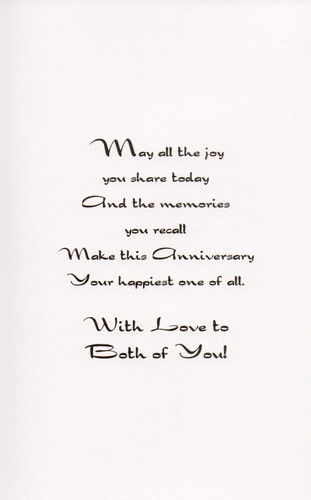 May all the joy
you share today
And the memories
you recall
Make this Anniversary
Your happiest one of all.
With Love to
Both of You!